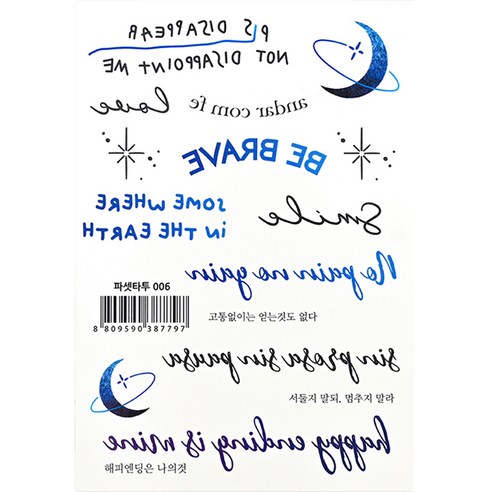 PLS DISAPPEAR
NOT DISAPPOINT ME
love
andar com fe
BE BRAVE
SOME WHERE
IN THE EARTH
Smile
No pain no gain
파셋타투 006
8 809590 387797
고통없이는 얻는것도 없다
sin prosa sin pausa
서둘지 말되, 멈추지 말라
happy ending is mine
해피엔딩은 나의것